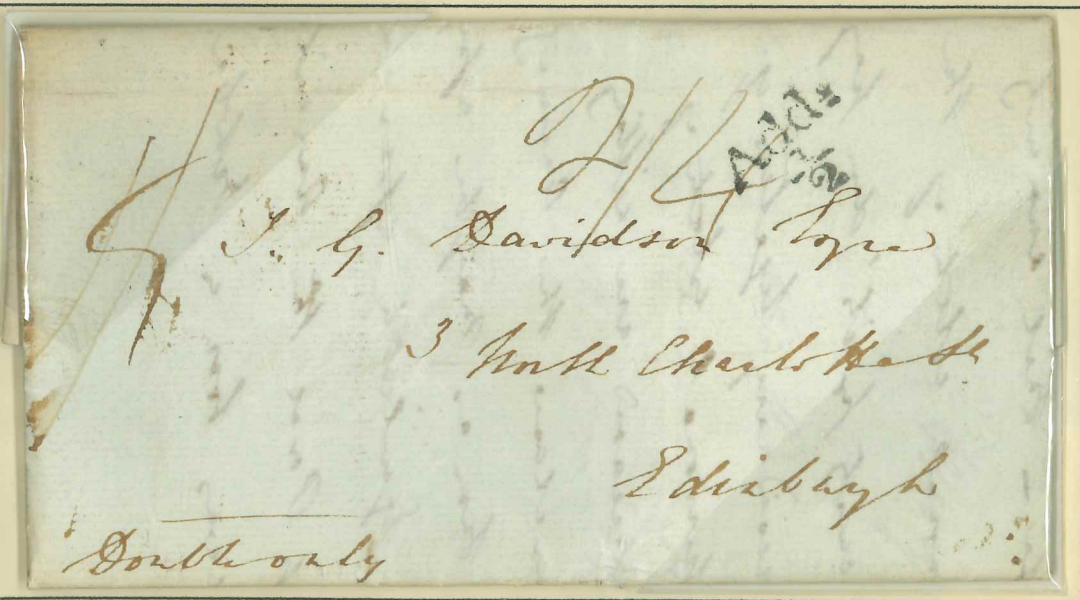 2/4
Add: ½
T. G. Davidson Esqre
3 North Charlotte St
Edinburgh
Double only